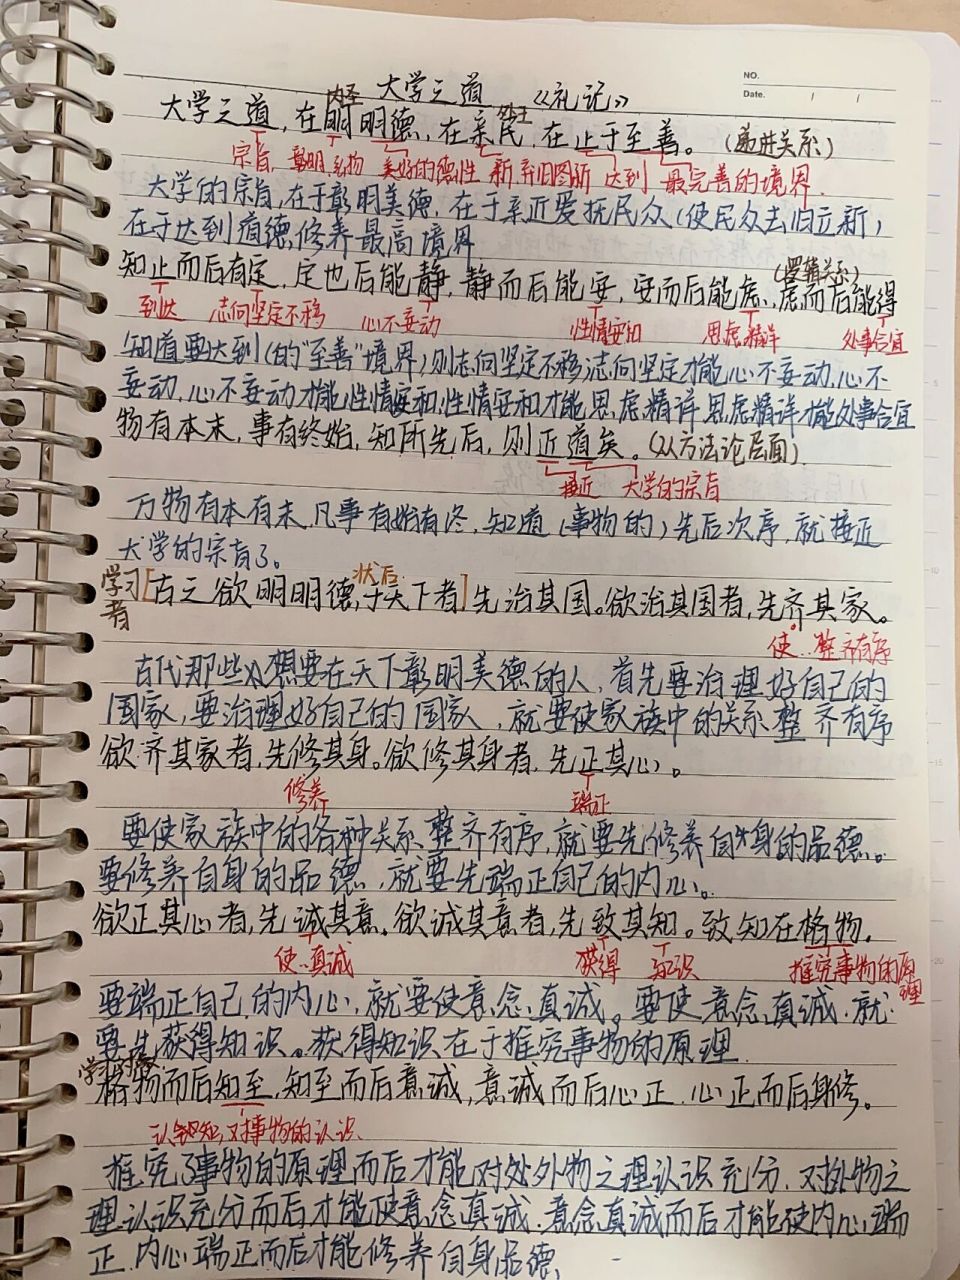 NO.
Date.
大学之道 《礼记》
内圣 外王
大学之道，在明明德，在亲民，在止于至善。（递进关系）
宗旨 彰明 美好的德性 新，弃旧图新 达到 最完善的境界
大学的宗旨，在于彰明美德，在于亲近爱抚民众（使民众去旧立新）
在于达到道德修养最高境界
（逻辑关系）
知止而后有定，定也后能静，静而后能安，安而后能虑，虑而后能得
到达 志向坚定不移 心不妄动 性情安和 思虑精详 处事合宜
知道要达到（的“至善”境界）则志向坚定不移，志向坚定才能心不妄动，心不
妄动，心不妄动才能性情安和，性情安和才能思虑精详，思虑精详才能处事合宜
物有本末，事有终始，知所先后，则近道矣。（从方法论层面）
接近 大学的宗旨
万物有本有末，凡事有始有终，知道（事物的）先后次序，就接近
大学的宗旨了。
状后
学习者 [古之欲明明德，于天下者]先治其国。欲治其国者，先齐其家。
使…整齐有序
古代那些想要在天下彰明美德的人，首先要治理好自己的
国家，要治理好自己的国家，就要使家族中的关系整齐有序
欲齐其家者，先修其身。欲修其身者，先正其心。
修养 端正
要使家族中的各种关系整齐有序，就要先修养自身的品德。
要修养自身的品德，就要先端正自己的内心。
欲正其心者，先诚其意。欲诚其意者，先致其知。致知在格物。
使…真诚 获得 知识 推究事物的原理
要端正自己的内心，就要使意念真诚。要使意念真诚，就
要先获得知识。获得知识在于推究事物的原理
格物而后知至，知至而后意诚，意诚而后心正，心正而后身修。
认知，对事物的认识
推究了事物的原理而后才能对处外物之理认识充分，对外物之
理认识充分而后才能使意念真诚，意念真诚而后才能使内心端
正，内心端正而后才能修养自身品德、